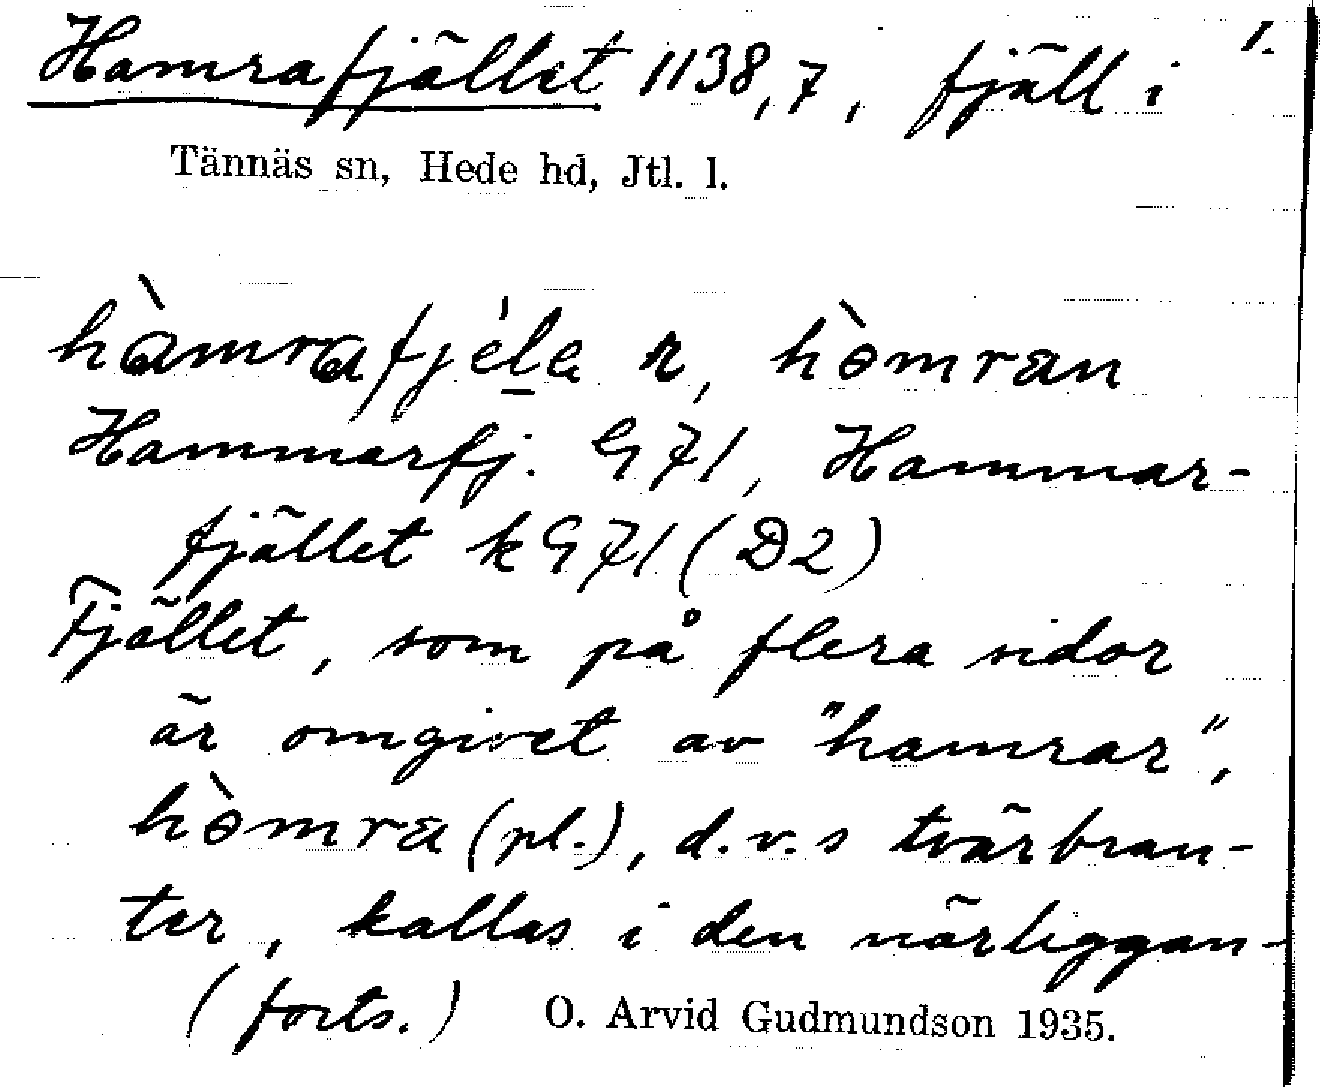 1.
Hamrafjället 1138,7, fjäll i
Tännäs sn, Hede hd, Jtl. l.
hàmrafjéla n, hòmran
Hammarfj. G71, Hammar-
fjället kG71 (D2)
Fjället, som på flera sidor
är omgivet av "hamrar",
hòmra (pl.), d.v.s tvärbran-
ter, kallas i den närliggan-
(forts.) O. Arvid Gudmundson 1935.